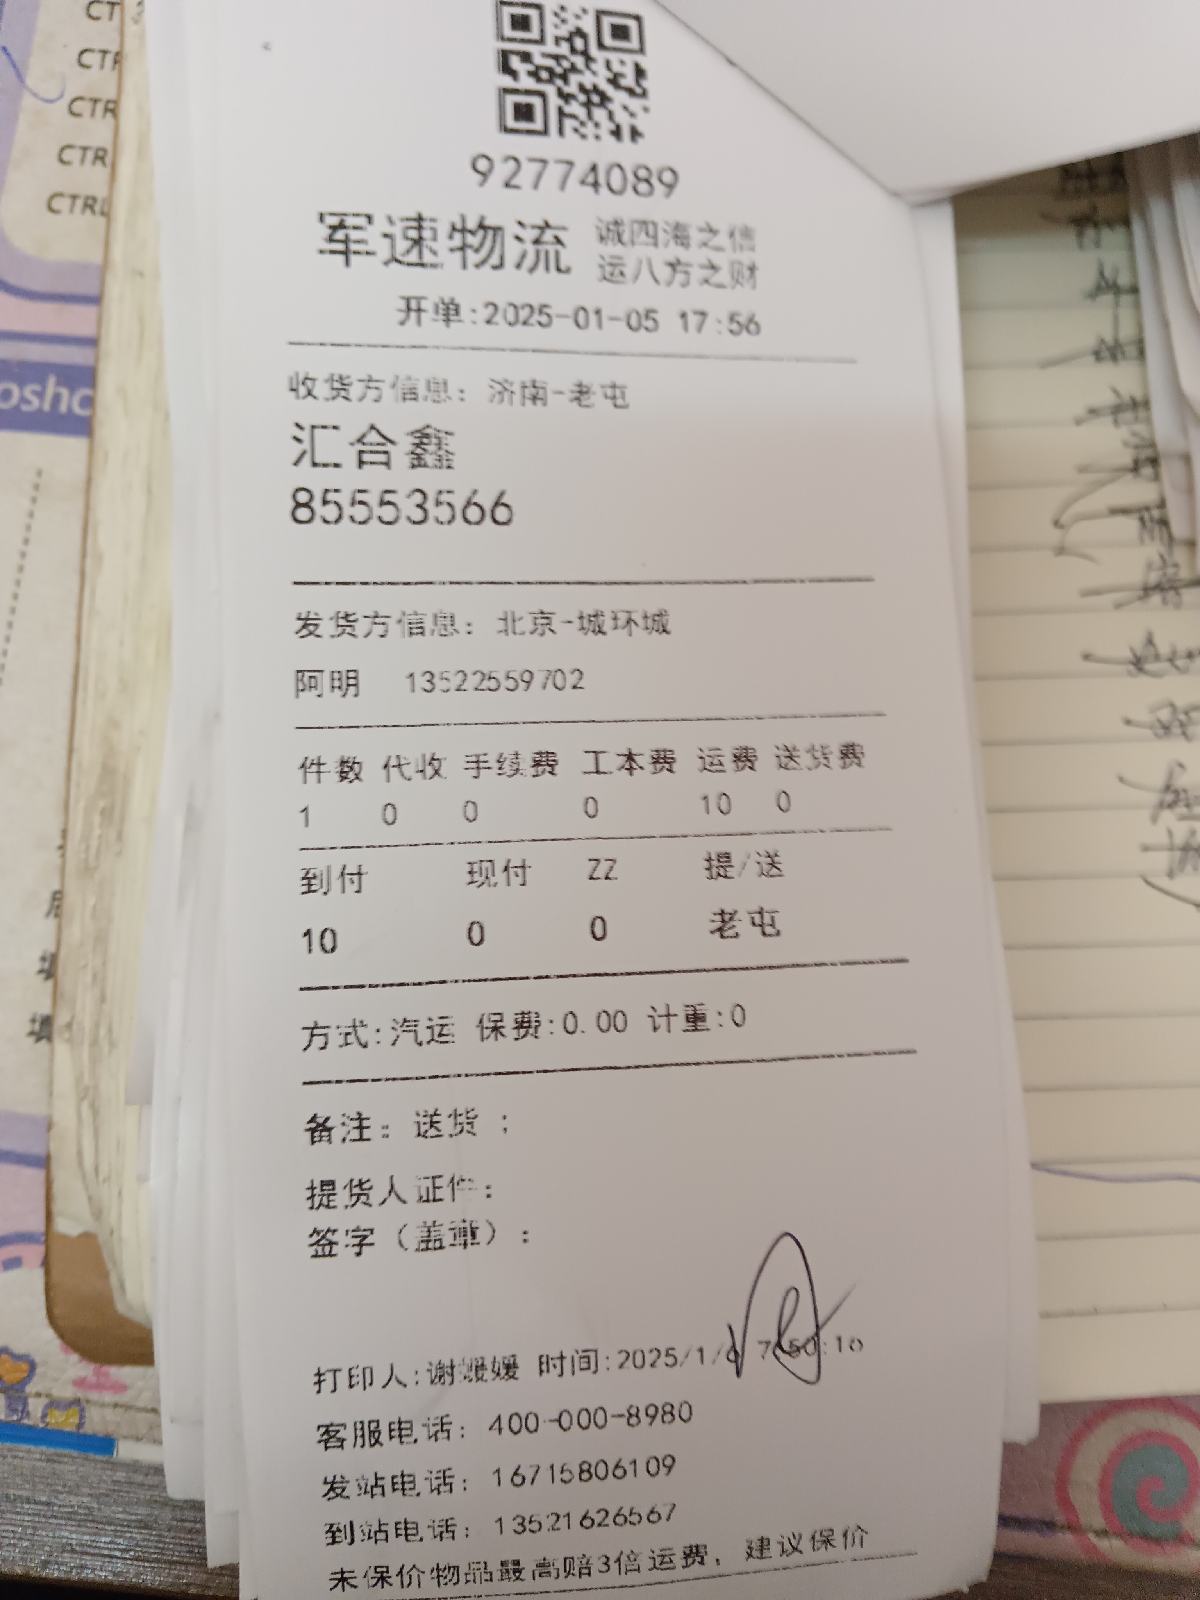 CTR
CTR
CTR
CTRL
92774089
军速物流 诚四海之信
运八方之财
开单:2025-01-05 17:56
收货方信息: 济南-老屯
汇合鑫
85553566
发货方信息: 北京-城环城
阿明 13522559702
件数 代收 手续费 工本费 运费 送货费
1 0 0 0 10 0
到付 现付 ZZ 提/送
10 0 0 老屯
方式:汽运 保费:0.00 计重:0
备注: 送货 ;
提货人证件:
签字（盖章）:
打印人:谢媛媛 时间:2025/1/
客服电话: 400-000-8980
发站电话: 16715806109
到站电话: 13521626567
未保价物品最高赔3倍运费, 建议保价